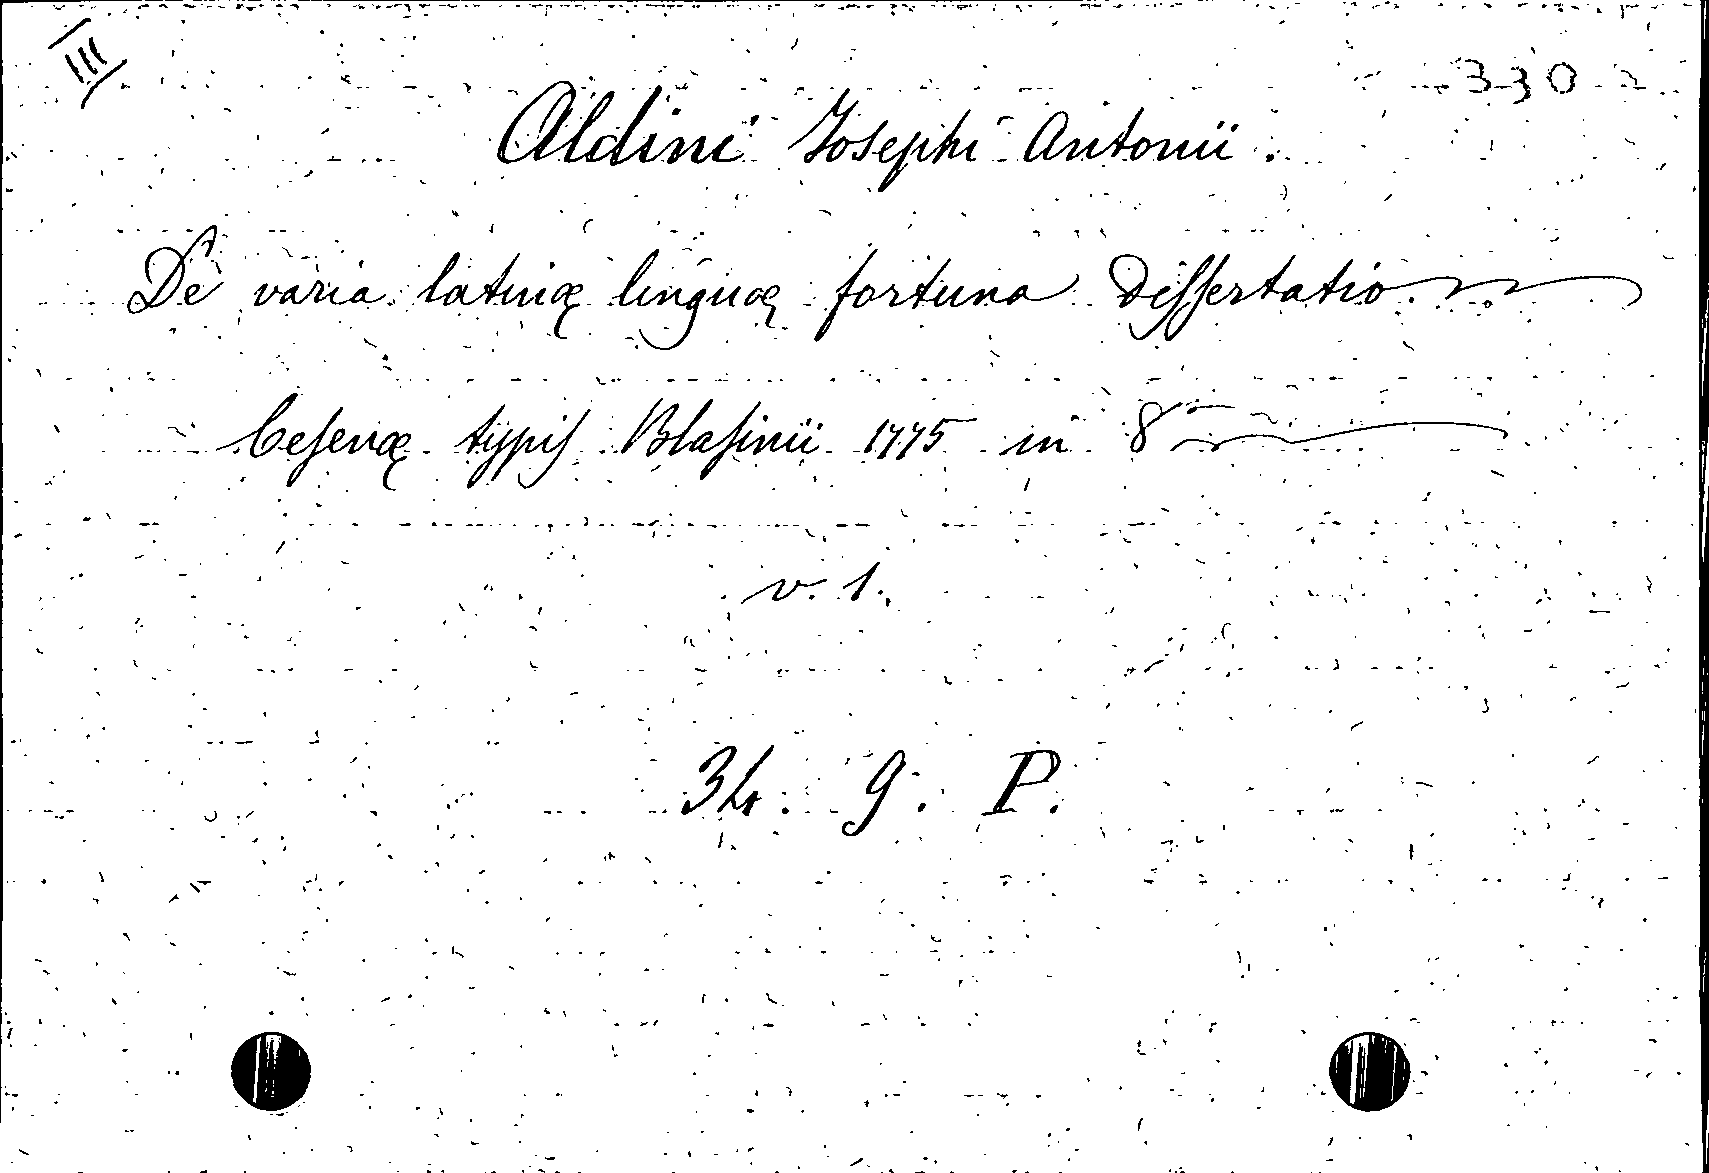 III
330
Aldini Josephi Antonii.
De varia latinæ linguæ fortuna Dissertatio
Cesenæ typis Blasinii 1775 in 8
v. 1.
34. g. P.